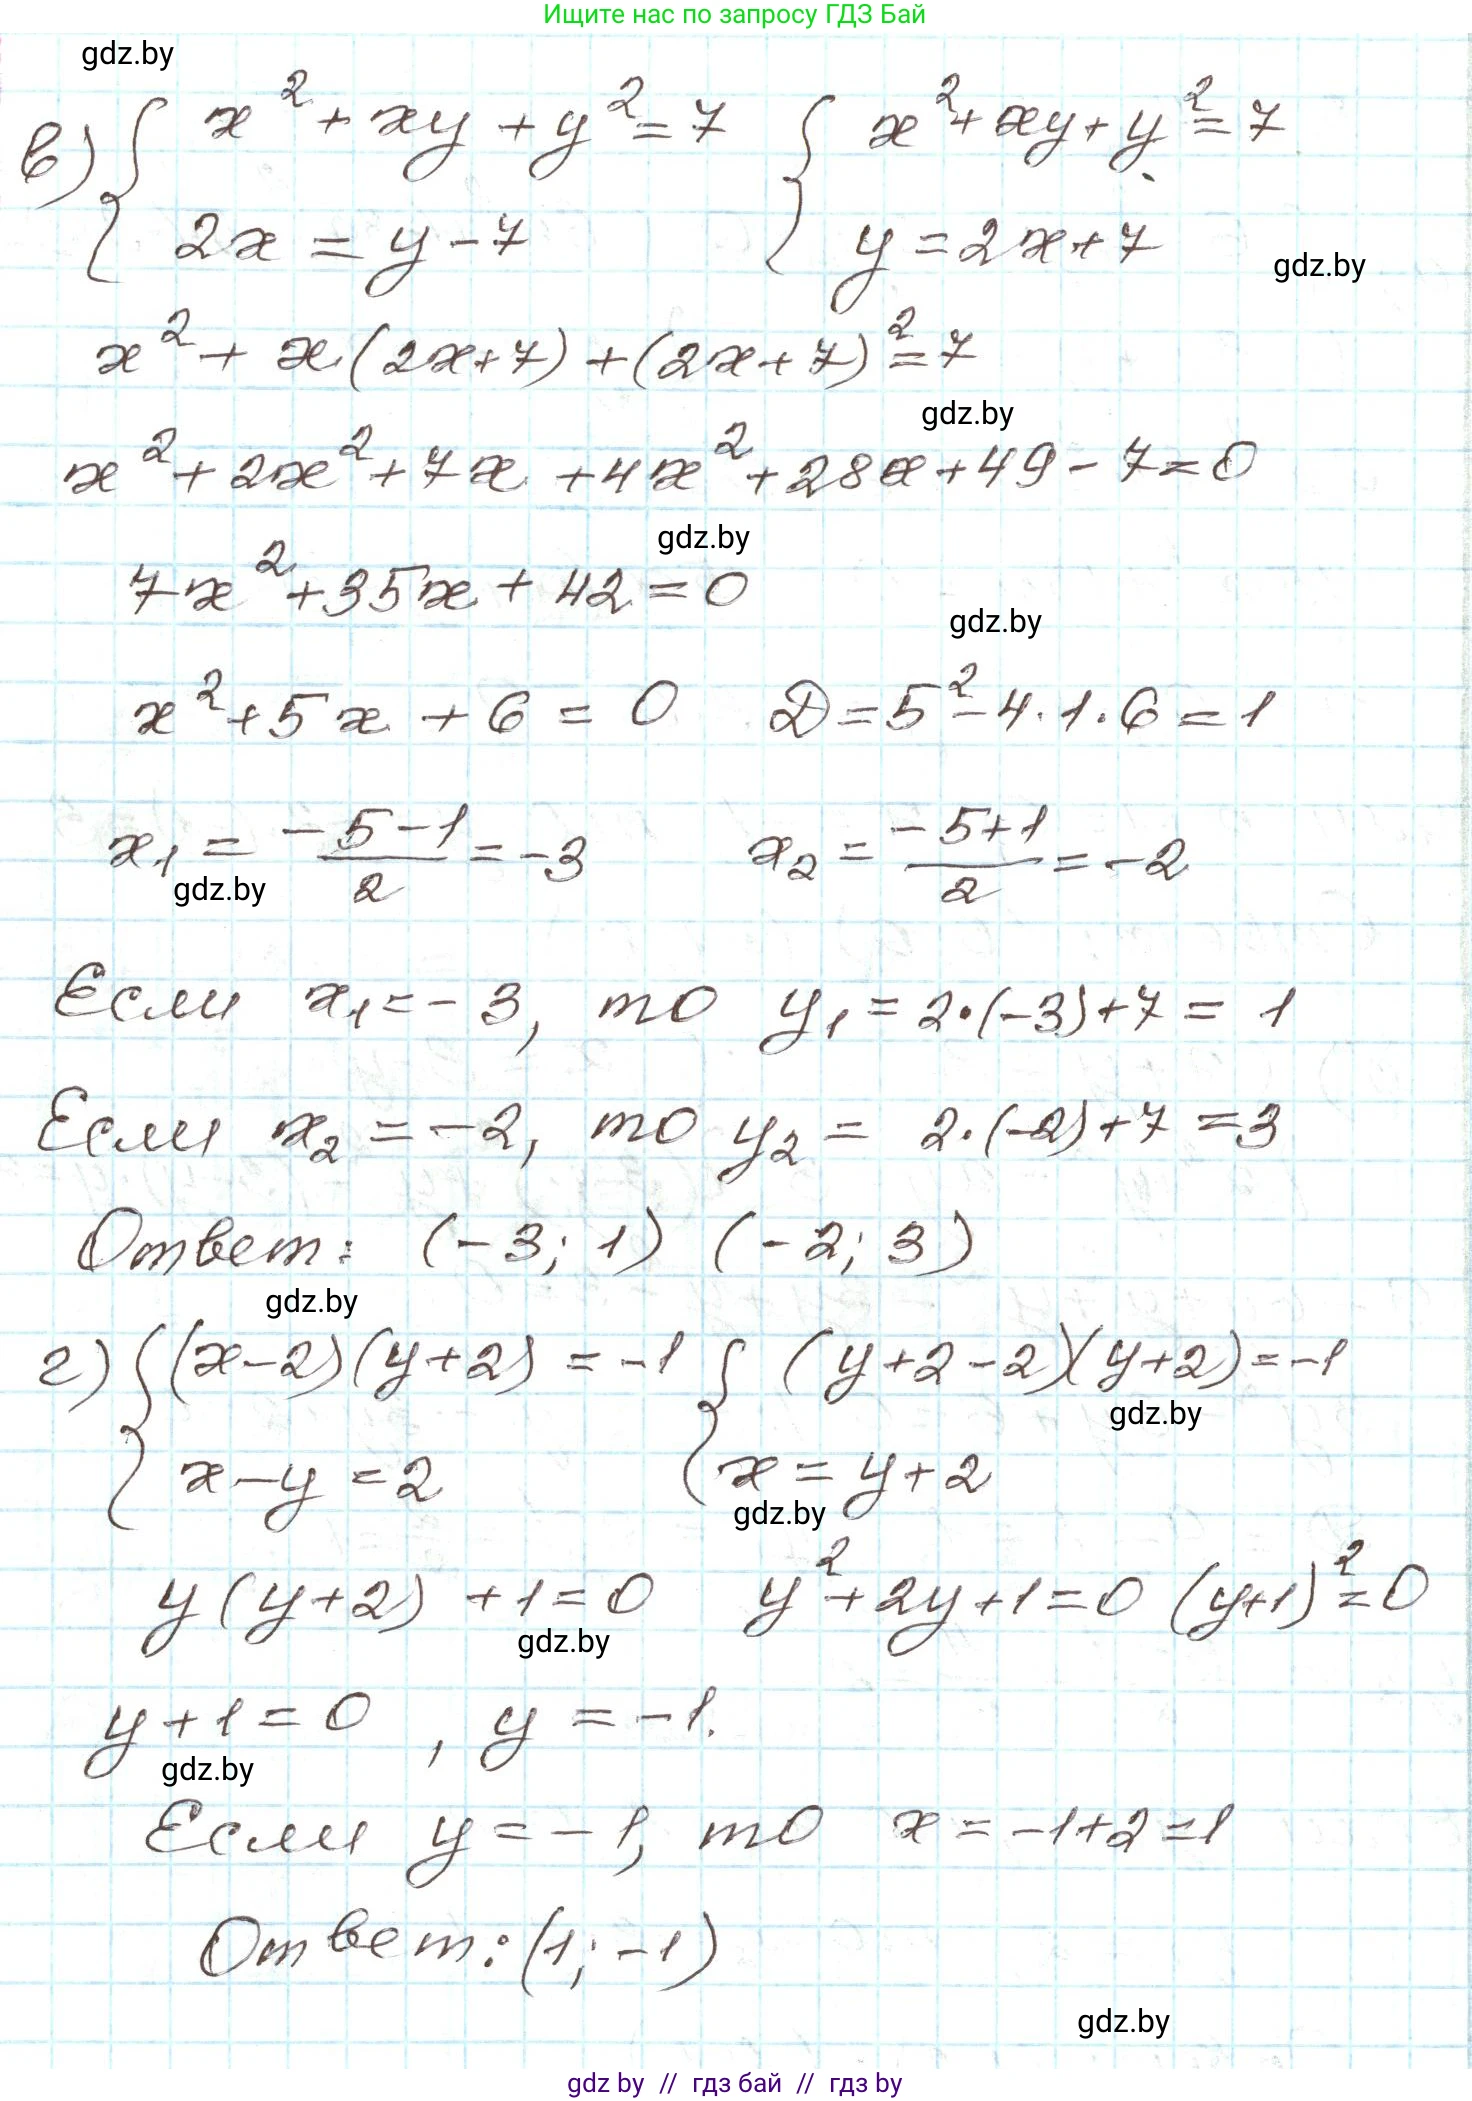 Ищите нас по запросу ГДЗ Бай
gdz.by
в) { x² + xy + y² = 7 { x² + xy + y² = 7
2x = y - 7 y = 2x + 7
gdz.by
x² + x(2x+7) + (2x+7)² = 7
gdz.by
x² + 2x² + 7x + 4x² + 28x + 49 - 7 = 0
gdz.by
7x² + 35x + 42 = 0
gdz.by
x² + 5x + 6 = 0 D = 5² - 4·1·6 = 1
x₁ = (-5-1)/2 = -3 x₂ = (-5+1)/2 = -2
gdz.by
Если x₁ = -3, то y₁ = 2·(-3)+7 = 1
Если x₂ = -2, то y₂ = 2·(-2)+7 = 3
Ответ: (-3; 1) (-2; 3)
gdz.by
г) { (x-2)(y+2) = -1 { (y+2-2)(y+2) = -1
gdz.by
x - y = 2 x = y + 2
gdz.by
y(y+2) + 1 = 0 y² + 2y + 1 = 0 (y+1)² = 0
gdz.by
y + 1 = 0 , y = -1.
gdz.by
Если y = -1, то x = -1+2 = 1
Ответ: (1; -1)
gdz.by
gdz by // гдз бай // гдз by